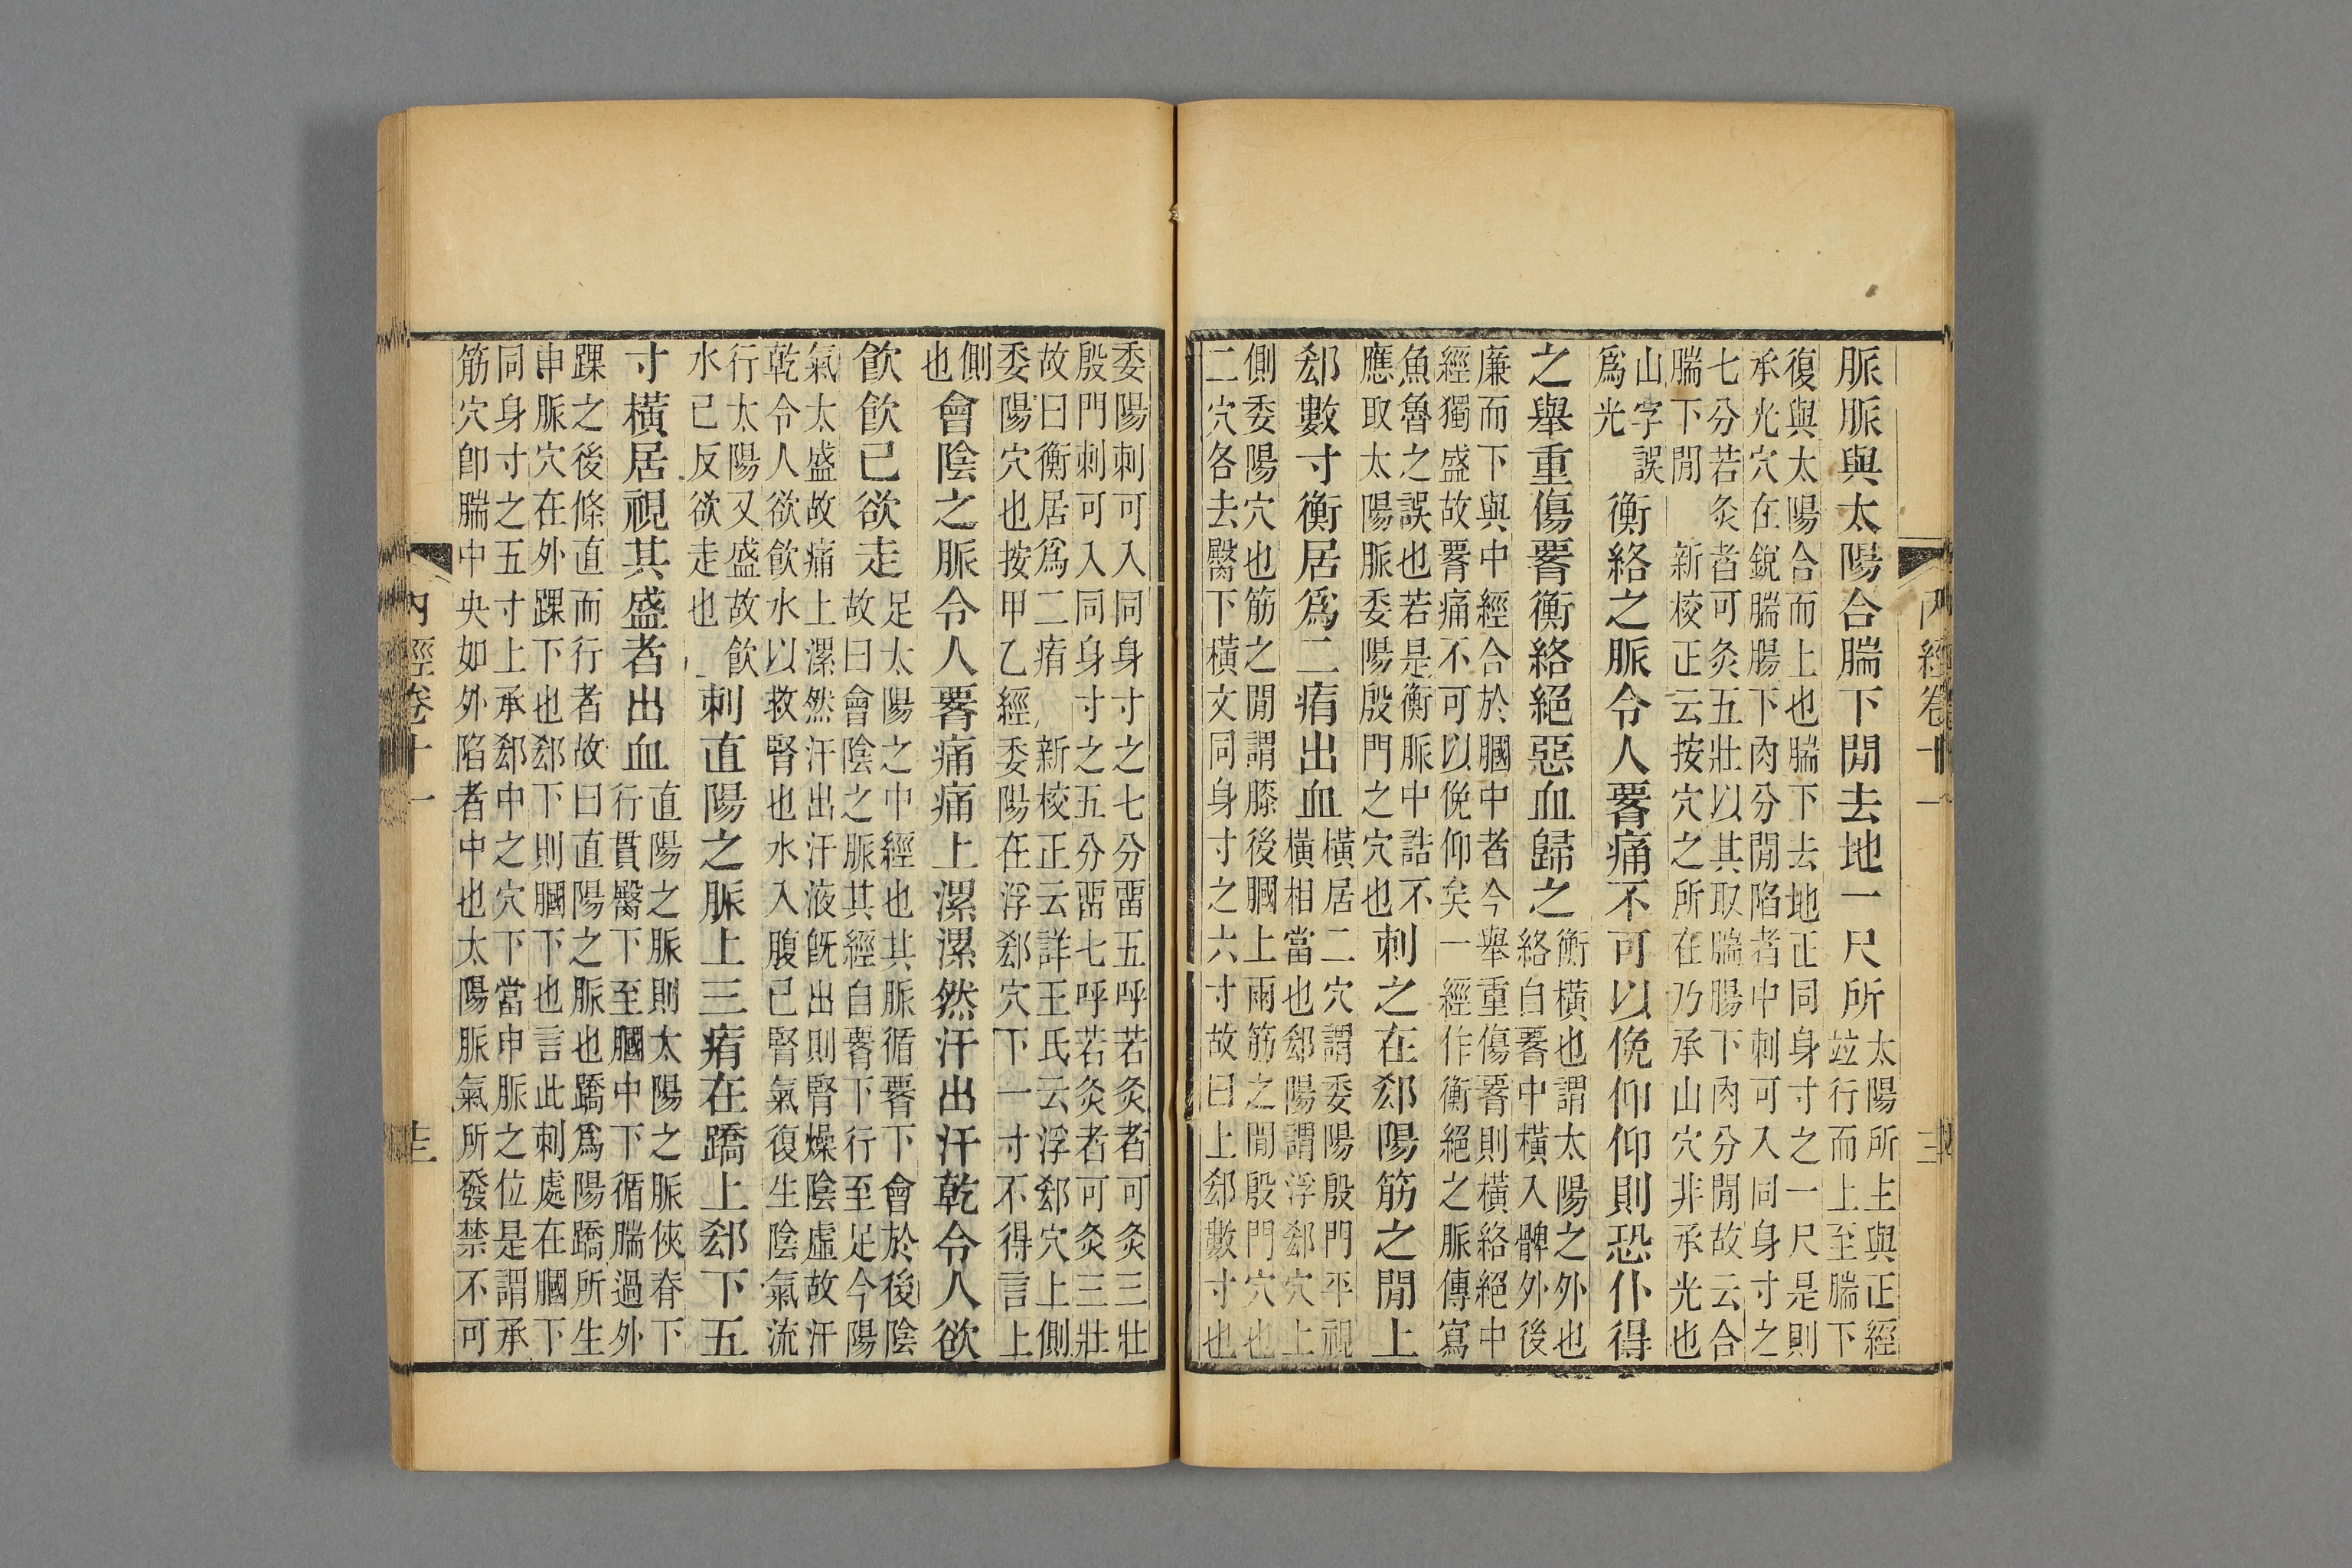 脈脈與太陽合腨下閒去地一尺所
太陽所主與正經
竝行而上至腨下
復與太陽合而上也腨下去地正同身寸之一尺是則
承光穴在銳腨腸下肉分閒陷者中刺可入同身寸之
七分若灸者可灸五壯以其取腨腸下肉分閒故云合
腨下閒 新校正云按穴之所在乃承山穴非承光也
山字誤
爲光
衡絡之脈令人腰痛不可以俛仰仰則恐仆得
之舉重傷腰衡絡絕惡血歸之
衡橫也謂太陽之外也
絡自腰中橫入髀外後
廉而下與中經合於膕中者今舉重傷腰則橫絡絕中
經獨盛故腰痛不可以俛仰矣一經作衡絕之脈傳寫
魚魯之誤也若是衡脈中誥不
應取太陽脈委陽殷門之穴也
刺之在郄陽筋之閒上
郄數寸衡居爲二痏出血
橫居二穴謂委陽殷門平視
橫相當也郄陽謂浮郄穴上
側委陽穴也筋之閒謂膝後膕上兩筋之閒殷門穴也
二穴各去臀下橫文同身寸之六寸故曰上郄數寸也
內經卷十一
委陽刺可入同身寸之七分畱五呼若灸者可灸三壯
殷門刺可入同身寸之五分畱七呼若灸者可灸三壯
故曰衡居爲二痏 新校正云詳王氏云浮郄穴上側
委陽穴也按甲乙經委陽在浮郄穴下一寸不得言上
側
也
會陰之脈令人腰痛痛上漯漯然汗出汗乾令人欲
飮飮已欲走
足太陽之中經也其脈循腰下會於後陰
故曰會陰之脈其經自腰下行至足今陽
氣太盛故痛上漯然汗出汗液旣出則腎燥陰虛故汗
乾令人欲飮水以救腎也水入腹已腎氣復生陰氣流
行太陽又盛故飮
水已反欲走也
刺直陽之脈上三痏在蹻上郄下五
寸橫居視其盛者出血
直陽之脈則太陽之脈俠脊下
行貫臀下至膕中下循腨過外
踝之後條直而行者故曰直陽之脈也蹻爲陽蹻所生
申脈穴在外踝下也郄下則膕下也言此刺處在膕下
同身寸之五寸上承郄中之穴下當申脈之位是謂承
筋穴卽腨中央如外陷者中也太陽脈氣所發禁不可
內經卷十一